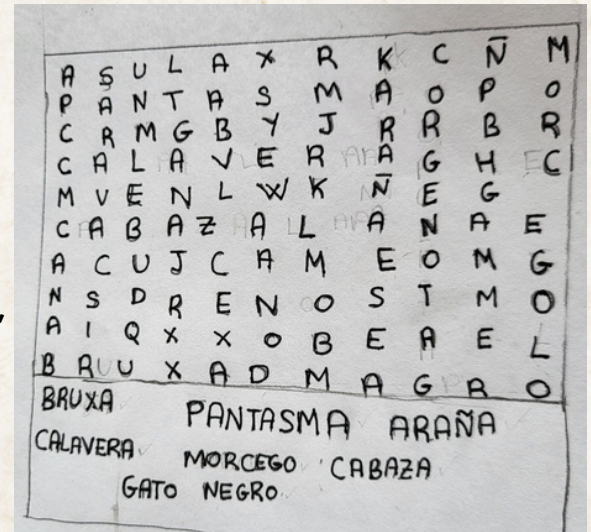 A S U L A X R K C Ñ M
P A N T A S M A O P O
C R M G B Y J R R B R
C A L A V E R A G H C
M V E N L W K Ñ E G
C A B A Z A L A N A E
A C U J C A M E O M G
N S D R E N O S T M O
A I Q X X O B E A E L
B R U X A D M A G R O
BRUXA PANTASMA ARAÑA
CALAVERA MORCEGO CABAZA
GATO NEGRO